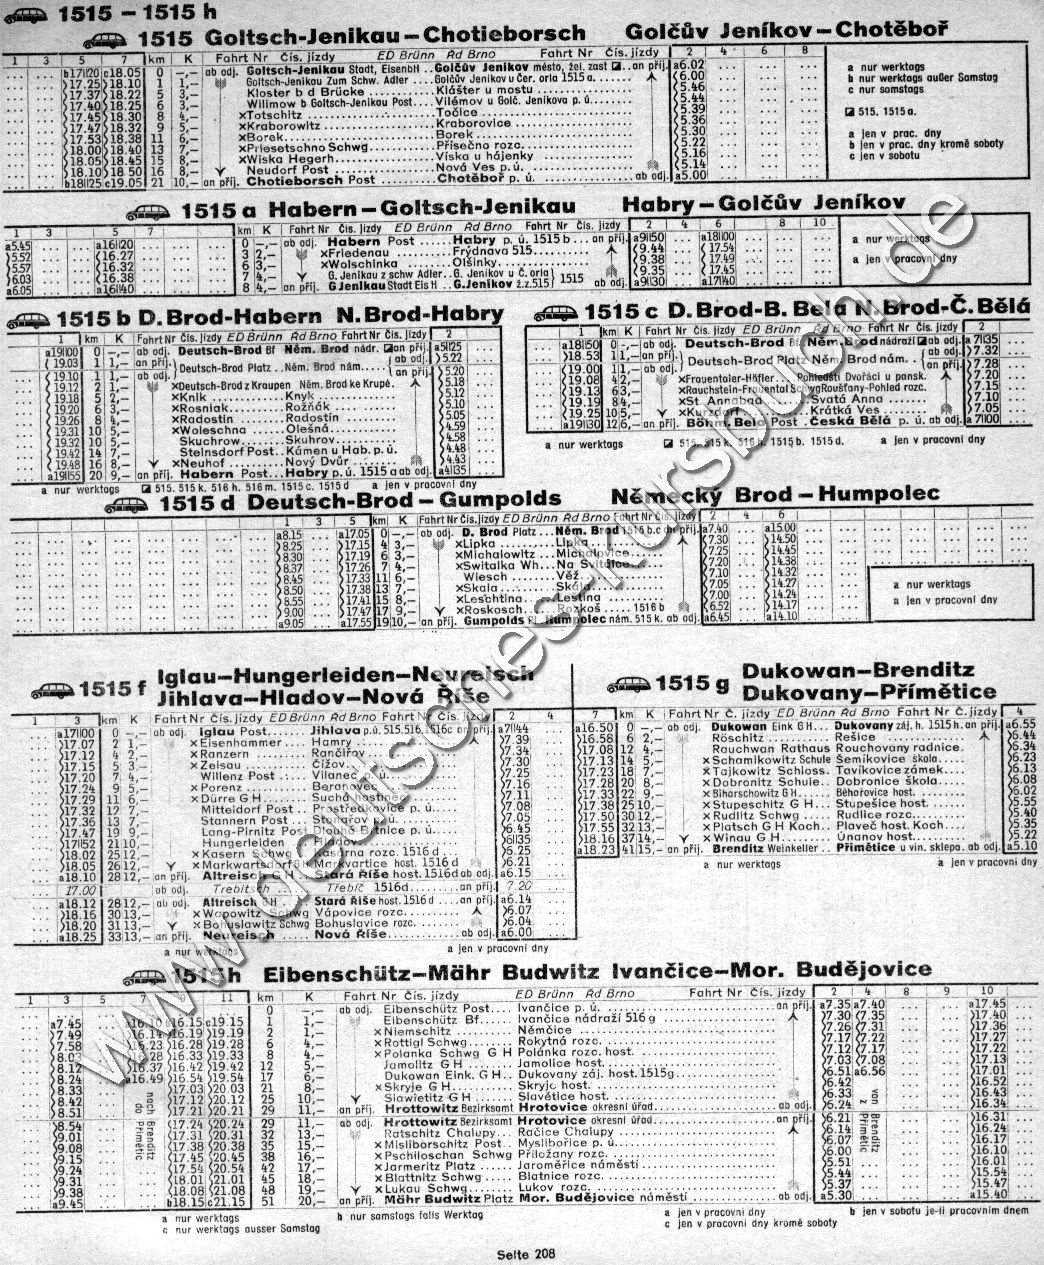 1515 – 1515 h
1515 Goltsch-Jenikau–Chotieborsch Golčův Jeníkov–Chotěboř
1 3 5 7 km K Fahrt Nr Čís. jízdy ED Brünn Řd Brno Fahrt Nr Čís. jízdy 2 4 6 8
b17 20 c18.05 0 –,– ab odj. Goltsch-Jenikau Stadt, Eisenbh .. Golčův Jeníkov město, žel. zast .. an příj. a6.02
17.25 18.10 1 1,– Goltsch-Jenikau Zum Schw. Adler .. Golčův Jeníkov u Čer. orla 1515 a. 6.00
17.37 18.22 5 3,– Kloster b d Brücke Klášter u mostu 5.46
17.40 18.25 6 3,– Wilimow b Goltsch-Jenikau Post Vilémov u Golč. Jeníkova p. ú. 5.44
17.45 18.30 8 4,– ×Totschitz Točice 5.39
17.47 18.32 9 5,– ×Kraborowitz Kraborovice 5.36
17.53 18.38 11 6,– ×Borek Borek 5.30
18.00 18.40 13 7,– ×Priesetschno Schwg. Přísečno rozc. 5.22
18.05 18.45 15 8,– ×Wiska Hegerh Víska u hájenky 5.16
18.10 18.50 16 8,– Neudorf Post Nová Ves p. ú. 5.14
b18 25 c19.05 21 10,– an příj. Chotieborsch Post Chotěboř p. ú. ab odj. a5.00
a nur werktags
b nur werktags außer Samstag
c nur samstags
515. 1515 a.
a jen v prac. dny
b jen v prac. dny kromě soboty
c jen v sobotu
1515 a Habern–Goltsch-Jenikau Habry–Golčův Jeníkov
1 3 5 7 km K Fahrt Nr Čís. jízdy ED Brünn Řd Brno Fahrt Nr Čís. jízdy 2 4 6 8 10
a5.45 a16 20 0 –,– ab odj. Habern Post Habry p. ú. 1515 b ... an příj. a9 50 a18 00
5.52 16.27 3 2,– ×Friedenau Frýdnava 515 9.44 17.54
5.57 16.32 6 3,– ×Wolschinka Olšinky 9.38 17.49
6.03 16.38 7 4,– G. Jenikau z schw Adler.. G. Jeníkov u Č. orla 1515 9.35 17.45
a6.05 a16 40 8 4,– an příj. G Jenikau Stadt Eis H .. G. Jeníkov ž. z. 515 ab odj. a9 30 a17 40
a nur werktags
a jen v pracovní dny
1515 b D. Brod-Habern N. Brod-Habry
1 km K Fahrt Nr Čís. jízdy ED Brünn Řd Brno Fahrt Nr Čís. jízdy 2
a19 00 0 –,– ab odj. Deutsch-Brod Bf Něm. Brod nádr. an příj. a5 25
19.03 1 1,– an příj. Deutsch-Brod Platz .. Něm. Brod nám. ab odj. 5.22
19.10 1 1,– ab odj. an příj. 5.20
19.12 2 1,– ×Deutsch-Brod z Kraupen Něm. Brod ke Krupé. 5.18
19.18 5 2,– ×Knik Knyk 5.12
19.20 6 3,– ×Rosniak Rožňák 5.10
19.26 8 4,– ×Radostin Radostín 5.05
19.31 10 5,– ×Woleschna Olešná 4.59
19.32 10 5,– Skuchrow Skuhrov 4.58
19.42 14 7,– Stelnsdorf Post Kámen u Hab. p. ú. 4.48
19.48 16 8,– ×Neuhof Nový Dvůr 4.43
a19 55 20 9,– an příj. Habern Post Habry p. ú. 1515 a ab odj. a4 35
a nur werktags 515. 515 k. 516 h. 516 m. 1515 c. 1515 d a jen v pracovní dny
1515 c D. Brod-B. Bela N. Brod-Č. Bělá
1 km K Fahrt Nr Čís. jízdy ED Brünn Řd Brno Fahrt Nr Čís. jízdy 2
a18 50 0 –,– ab odj. Deutsch-Brod Bf Něm. Brod nádraží ab odj. a 7 35
18.53 1 1,– an příj. Deutsch-Brod Platz Něm. Brod nám. an příj. 7.32
19.00 1 1,– ab odj. 7.28
19.08 4 2,– ×Frauentaler-Höfler Pohledští Dvořáci u pansk. 7.20
19.13 6 3,– ×Rauchstein-Frauental Schwg Roušťany-Pohled rozc. 7.15
19.19 8 4,– ×St. Annabad Svatá Anna 7.10
19.25 10 5,– ×Kurzdorf Krátká Ves 7.05
a19 30 12 6,– an příj. Böhm. Bela Post Česká Bělá p. ú. ab odj. a 7 00
a nur werktags 515. 515 k. 516 h. 1515 b. 1515 d. a jen v pracovní dny
1515 d Deutsch-Brod–Gumpolds Německý Brod–Humpolec
1 3 5 km K Fahrt Nr Čís. jízdy ED Brünn Řd Brno Fahrt Nr Čís. jízdy 2 4 6
a8.15 a17.05 0 –,– ab odj. D. Brod Platz Něm. Brod 1515 b.c an příj. a7.40 a15.00
8.25 17.15 4 3,– ×Lipka Lipka 7.30 14.50
8.30 17.19 6 3,– ×Michalowitz Michalovice 7.25 14.45
8.37 17.26 7 4,– ×Switalka Wh Na Svitálce 7.20 14.38
8.45 17.33 11 6,– Wiesch Věž 7.10 14.32
8.50 17.38 13 7,– ×Skala Skála 7.05 14.27
8.55 17.41 15 8,– ×Leschtina Leština 7.00 14.24
9.00 17.47 17 9,– ×Roskosch Rozkoš 1516 b 6.52 14.17
a9.05 a17.55 19 10,– an příj. Gumpolds Pl. Humpolec nám. 515 k. ab odj. a6.45 a14.10
a nur werktags
a jen v pracovní dny
1515 f Iglau–Hungerleiden–Neureisch
Jihlava–Hladov–Nová Říše
1 3 km K Fahrt Nr Čís. jízdy ED Brünn Řd Brno Fahrt Nr Čís. jízdy 2 4
a17 00 0 –,– ab odj. Iglau Post Jihlava p.ú. 515. 516. 1516c an příj. a7 44
17.07 2 1,– ×Eisenhammer Hamry 7.39
17.12 4 2,– ×Ranzern Rančířov 7.34
17.15 5 3,– ×Zeisau Čížov 7.30
17.20 7 4,– Willenz Post Vílanec p. ú. 7.25
17.24 9 5,– ×Porenz Beranovec 7.16
17.29 11 6,– ×Dürre G H Suchá hostinec 7.11
17.32 12 7,– Mitteldorf Post Prostředkovice p. ú. 7.08
17.36 13 7,– Stannern Post Stonařov p. ú. 7.05
17.47 19 9,– Lang-Pirnitz Post Dlouhá Brtnice p. ú. 6.45
17 52 21 10,– Hungerleiden Hladov 6 35
18.02 25 12,– ×Kasern Schwg Kasárna rozc. 1516 d 6.25
18.05 26 12,– ×Markwartsdorf G H Markvartice host. 1516 d 6.21
a18.10 28 12,– an příj. Altreisch G H Stará Říše host. 1516d ab odj. a6.15
17.00 ab odj. Trebitsch Třebíč 1516d an příj. 7.20
a18.12 28 12,– ab odj. Altreisch G H Stará Říše host. 1516 d an příj. a6.14
18.16 30 13,– ×Wapowitz Schwg Vápovice rozc. 6.07
18.20 31 13,– ×Bohuslawitz Schwg Bohuslavice rozc. 6.04
a18.25 33 13,– an příj. Neureisch Nová Říše ab odj. a6.00
a nur werktags a jen v pracovní dny
1515 g Dukowan–Brenditz
Dukovany–Přímětice
7 km K Fahrt Nr Č. jízdy ED Brünn Řd Brno Fahrt Nr Čís. jízdy 4
a16.50 0 –,– ab odj. Dukowan Eink G H Dukovany záj. h. 1515 h. an příj. a6.55
16.58 6 2,– Röschitz Rešice 6.44
17.08 12 4,– Rauchwan Rathaus Rouchovany radnice. 6.34
17.13 14 5,– ×Schamikowitz Schule Šemíkovice škola 6.23
17.23 18 7,– ×Tajkowitz Schloss. Tavíkovice zámek 6.13
17.28 20 8,– ×Dobronitz Schule Dobronice škola 6.08
17.33 22 9,– ×Biharschowitz G H Běhařovice host. 6.02
17.38 25 10,– ×Stupeschitz G H Stupešice host. 5.55
17.50 30 12,– ×Rudlitz Schwg Rudlice rozc. 5.40
17.55 32 13,– ×Platsch G H Koch Plaveč host. Koch 5.35
18.16 37 14,– ×Winau G H Únanov host. 5.22
a18.23 41 15,– an příj. Brenditz Weinkeller Přímětice u vin. sklepa. ab odj. a5.10
a nur werktags a jen v pracovní dny
1515 h Eibenschütz–Mähr Budwitz Ivančice–Mor. Budějovice
1 3 5 7 9 11 km K Fahrt Nr Čís. jízdy ED Brünn Řd Brno Fahrt Nr Čís. jízdy 2 4 8 9 10
0 –,– ab odj. Eibenschütz Post Ivančice p. ú. an příj. a7.35 a7.40 a17.45
a7.45 a16.10 b16.15 c19.15 1 1,– Eibenschütz Bf. Ivančice nádraží 516 g 7.30 7.35 17.40
7.49 16.14 16.19 19.19 2 1,– ×Niemschitz Němčice 7.26 7.31 17.36
7.58 16.23 16.28 19.28 6 4,– ×Rottigl Schwg Rokytná rozc. 7.17 7.22 17.27
8.03 16.28 16.33 19.33 8 4,– ×Polanka Schwg G H Polánka rozc. host. 7.12 7.17 17.22
8.12 16.37 16.42 19.42 12 5,– Jamolitz G H Jamolice host. 7.03 7.08 17.13
8.24 a16.49 16.54 19.54 17 6,– Dukowan Eink. G H Dukovany záj. host. 1515g 6.51 a6.56 17.01
8.33 17.03 20.03 21 8,– ×Skryje G H Skryje host. 6.42 16.52
8.42 17.12 20.12 25 10,– ×Slawietitz G H Slavětice host. 6.33 16.43
8.51 17.21 20.21 29 11,– an příj. Hrottowitz Bezirksamt Hrotovice okresní úřad ab odj. 6.24 16.34
8.54 17.24 20.24 29 11,– ab odj. Hrottowitz Bezirksamt Hrotovice okresní úřad an příj. 6.21 16.31
9.01 17.31 20.31 32 13,– Ratschitz Chalupy Račice Chalupy 6.14 16.24
9.08 17.38 20.38 35 15,– ×Misliborschitz Post Myslibořice p. ú. 6.07 16.17
9.15 17.45 20.45 38 16,– ×Pschiloschan Schwg Příložany rozc. 6.00 16.10
9.24 17.54 20.54 42 17,– ×Jarmeritz Platz Jaroměřice náměstí 5.51 16.01
9.31 18.01 21.01 45 18,– ×Blattnitz Schwg Blatnice rozc. 5.44 15.54
9.38 18.08 21.08 48 19,– ×Lukau Schwg Lukov rozc. 5.37 15.47
a9.45 b18.15 c21.15 51 20,– an příj. Mähr Budwitz Platz Mor. Budějovice náměstí ab odj. a5.30 a15.40
nach do Brenditz Přímětic
von z Brenditz Přímětic
a nur werktags b nur samstags falls Werktag a jen v pracovní dny b jen v sobotu je-li pracovním dnem
c nur werktags ausser Samstag c jen v pracovní dny kromě soboty
Seite 208
www.deutsches-kursbuch.de